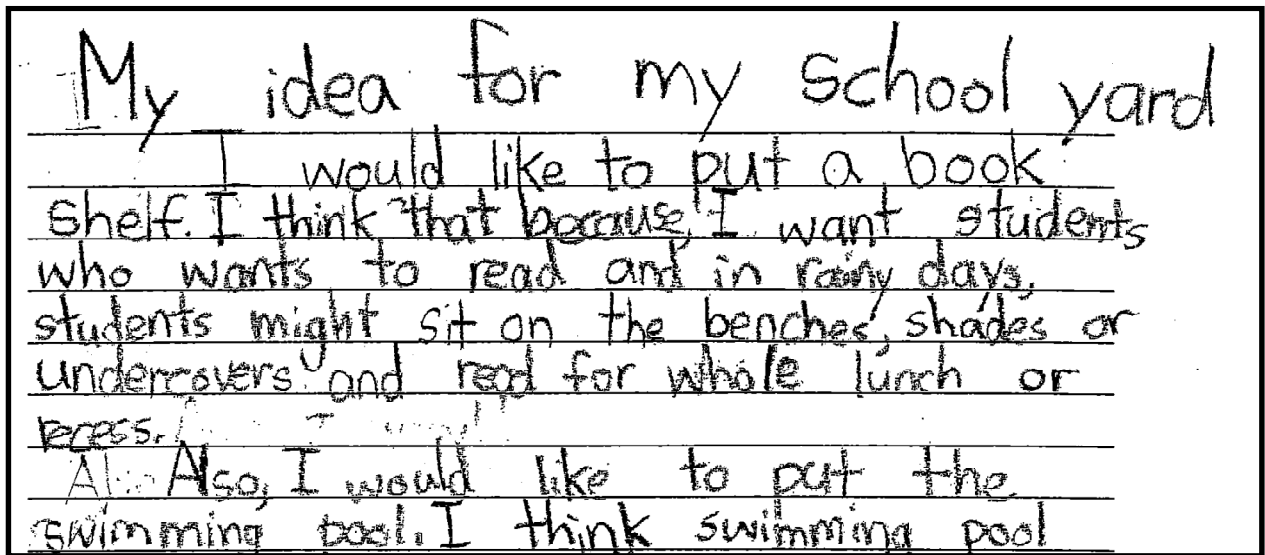 My idea for my school yard
I would like to put a book
shelf. I think that because, I want students
who wants to read and in rainy days,
students might sit on the benches, shades or
undercovers and read for whole lunch or
recess.
Also, I would like to put the
swimming pool. I think swimming pool